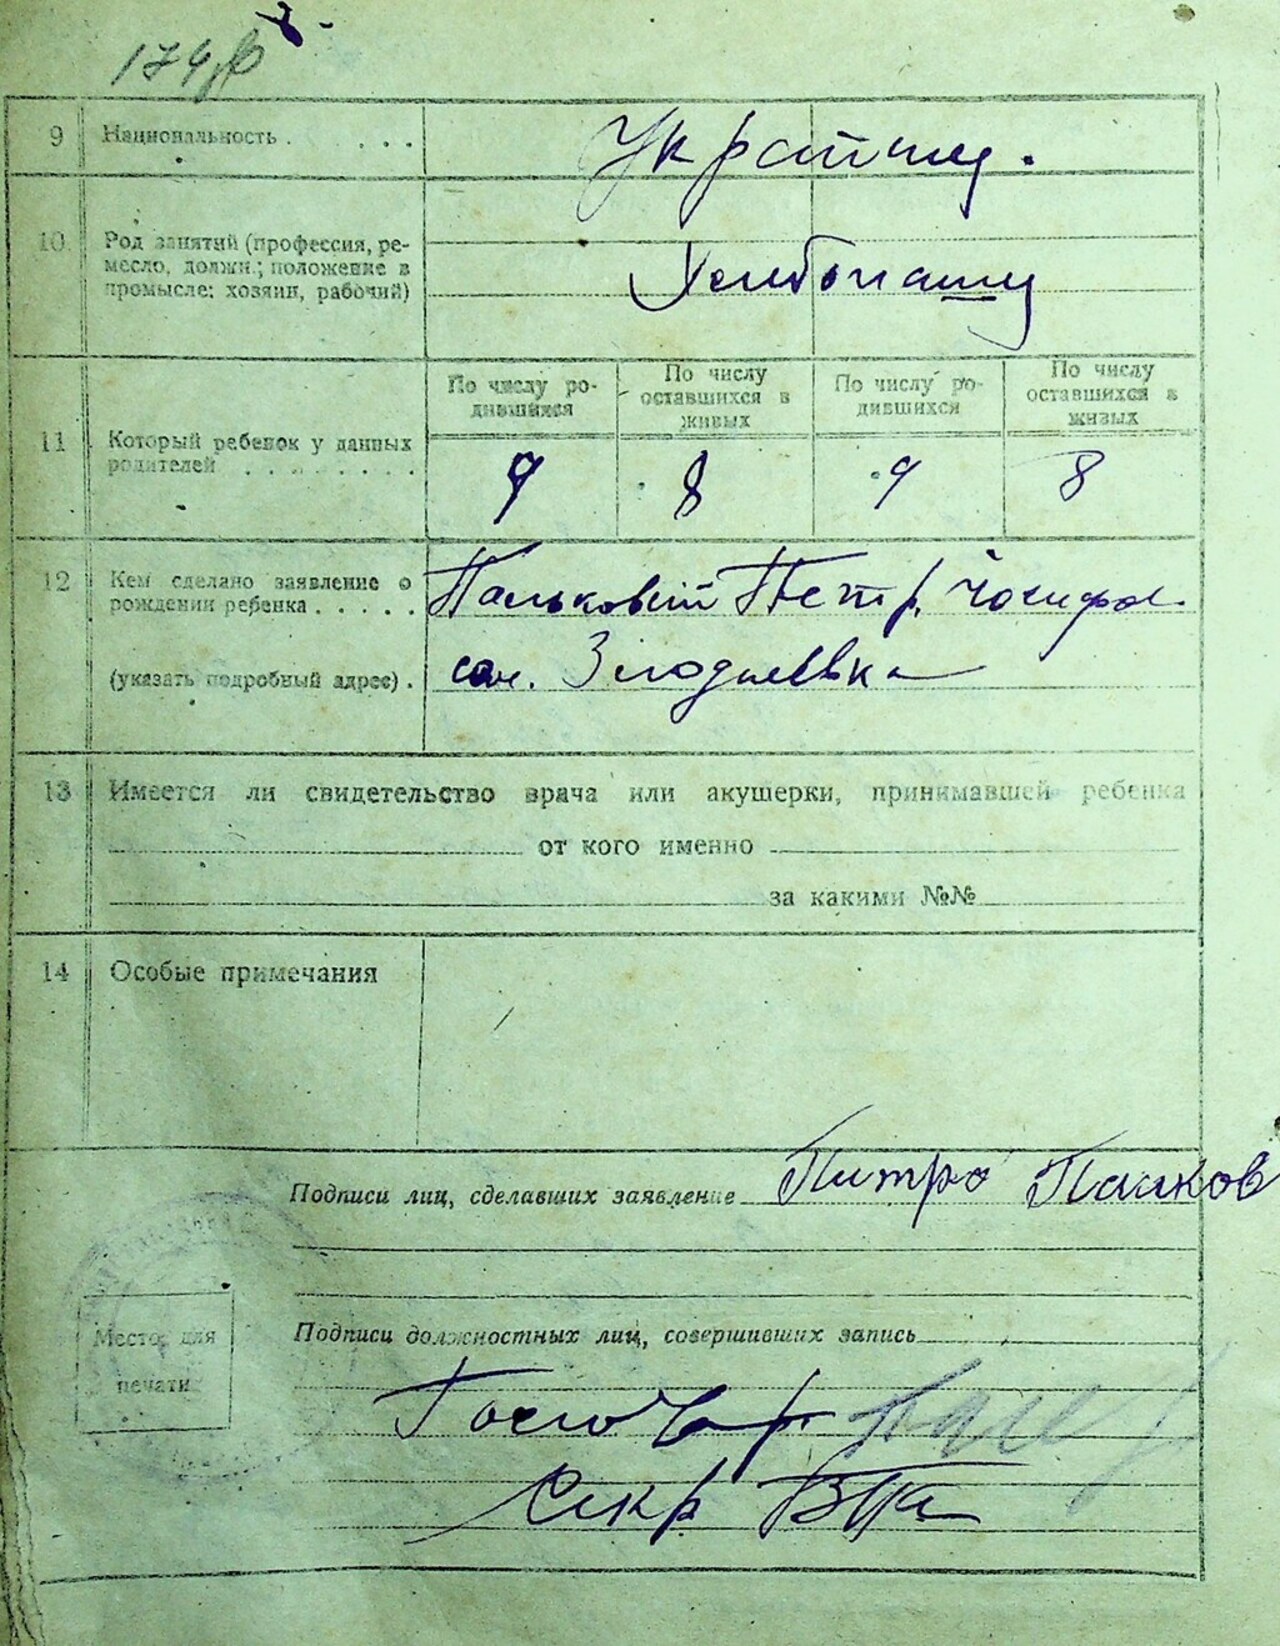 174
9 Национальность . . . . Українц.
10. Род занятий (профессия, ре-
месло, должн.; положение в
промысле: хозяин, рабочий)
Хлибопашц
По числу ро-
дившихся
По числу
оставшихся в
живых
По числу ро-
дившихся
По числу
оставшихся в
живых
11 Который ребенок у данных
родителей . . . . . . . .
9 8 9 8
12 Кем сделано заявление о
рождении ребенка . . . . .
Пальковсій Петр. Йосифов.
(указать подробный адрес) .
сел. Злодиевка
13 Имеется ли свидетельство врача или акушерки, принимавшей ребенка
от кого именно
за какими №№
14 Особые примечания
Подписи лиц, сделавших заявление Питро Палков
Место для
печати
Подписи должностных лиц, совершивших запись
Голова
Секр